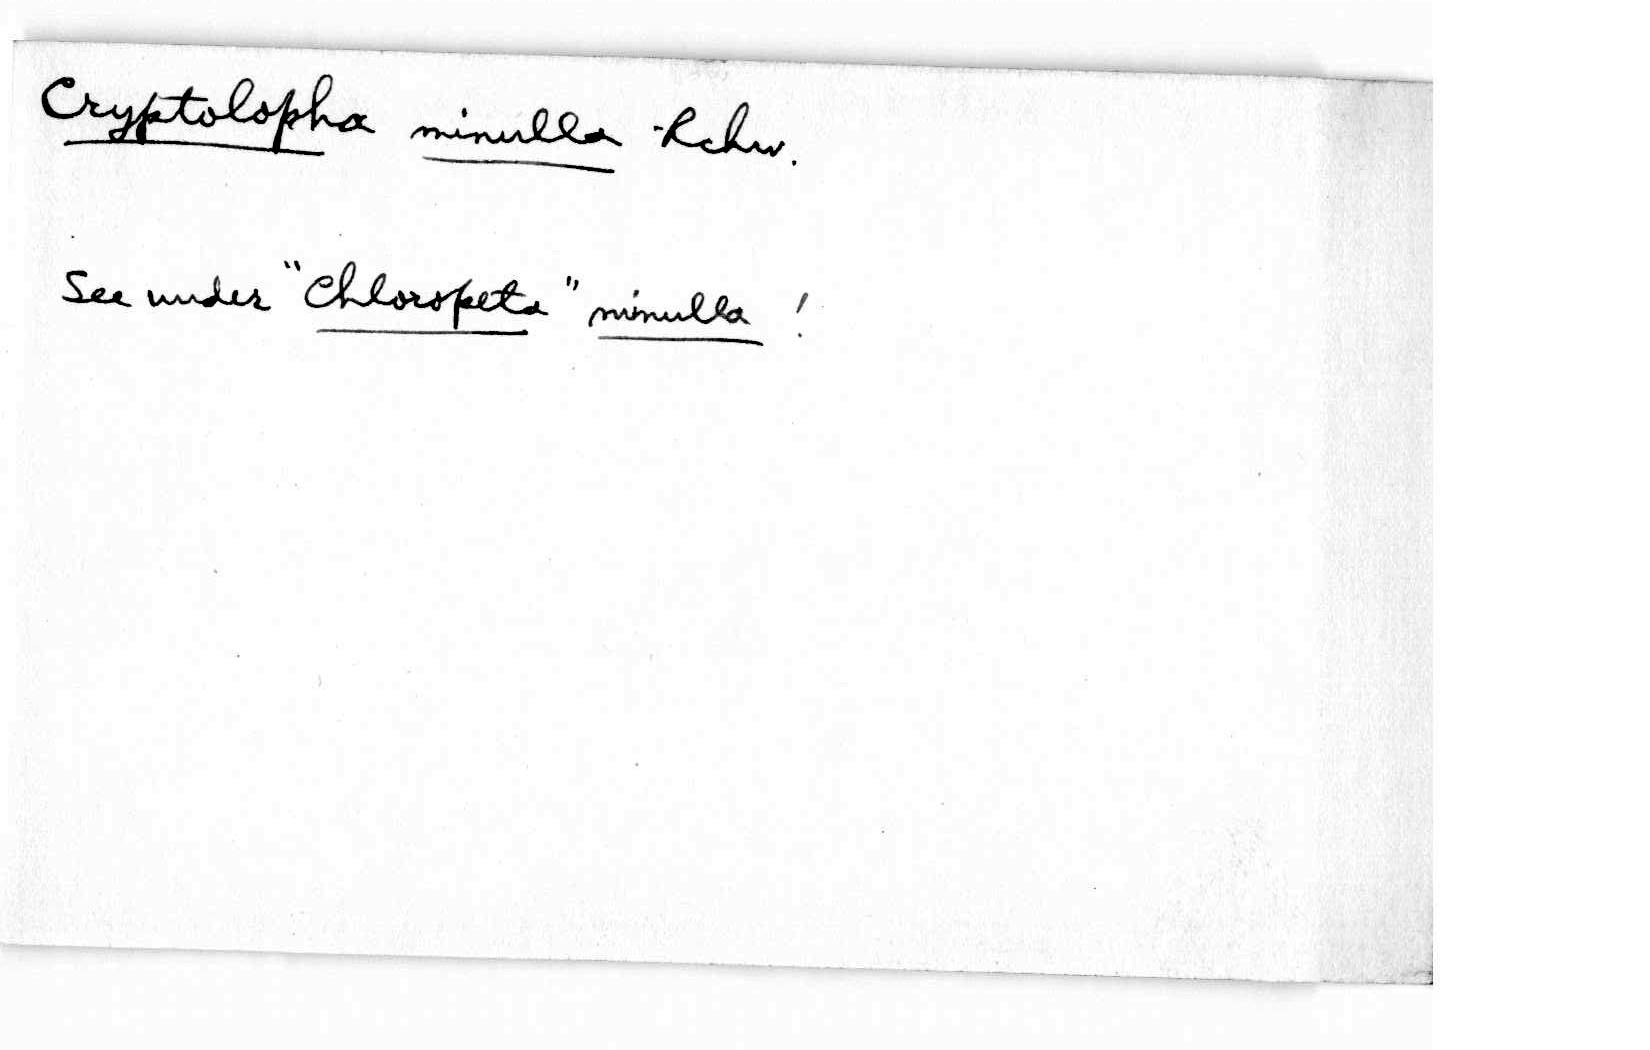 Cryptolopha minulla Rchw.
See under "Chloropeta" minulla!